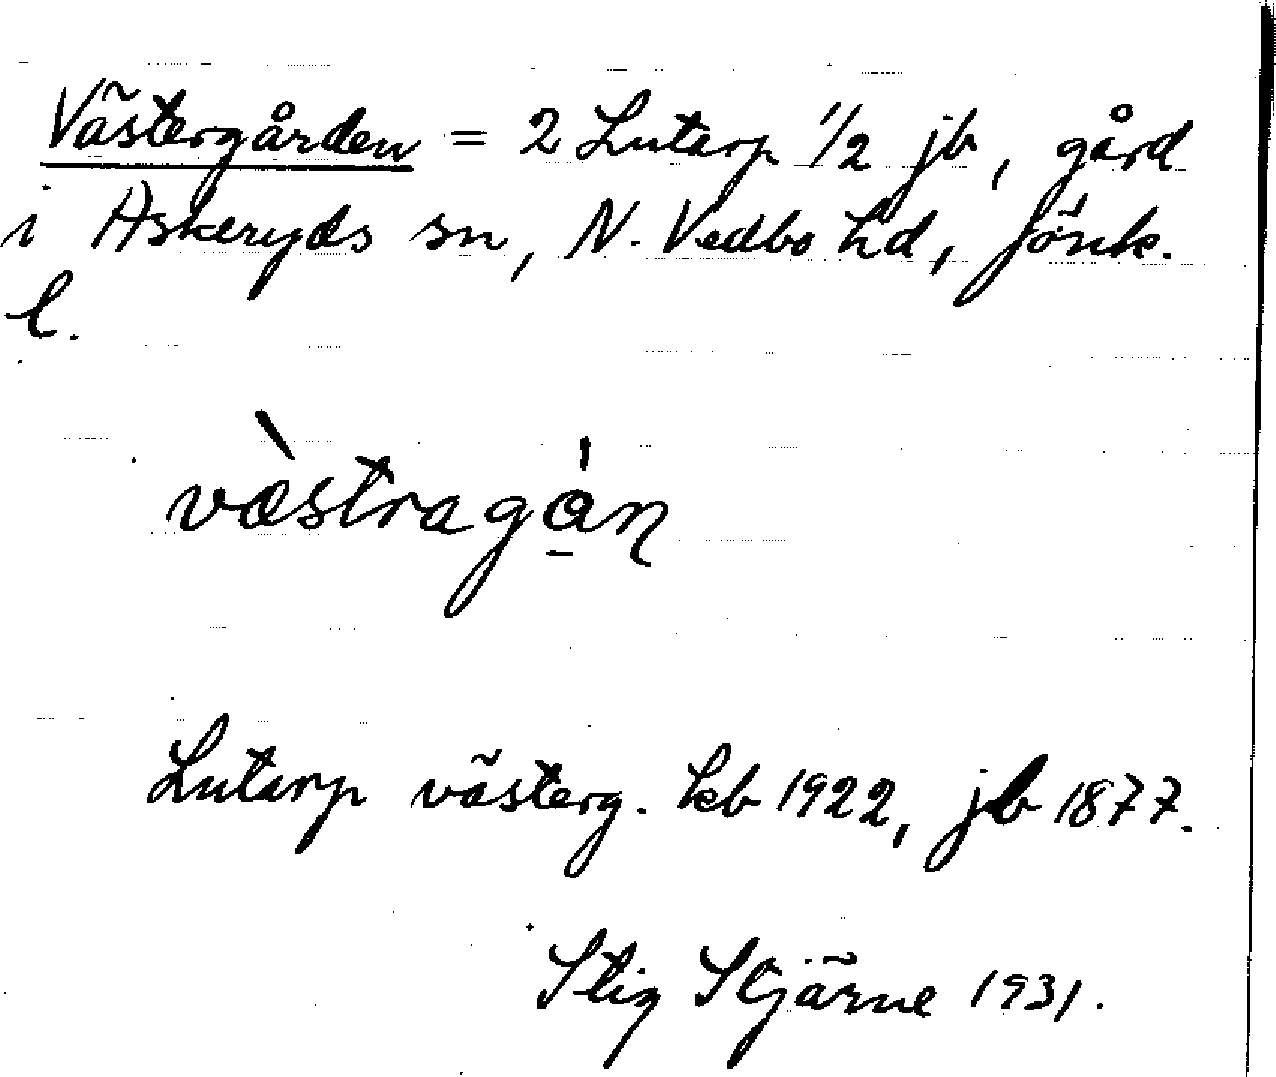 Västergården = 2 Lutarp 1/2 jb, gård
i Askeryds sn, N. Vedbo hd, Jönk.
l.
væ̀stragá̱ɳ
Lutarp västerg. kb 1922, jb 1877.
Stig Stjärne 1931.